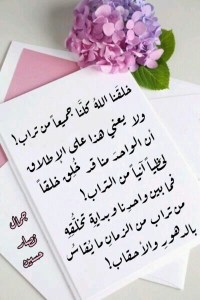 خلقنا اللهُ كلَّنا جميعاً من تراب!
ولا يعني هذا على الإطلاق
أن الواحدَ منا قد خُلِق خلقاً
لحظياً آنياً من التراب!
فما بين واحدِنا وبدايةِ تخلُّقِه
من تراب من الزمان ما يُقاسُ
بالدهورِ والأحقاب!
جمال
حسين